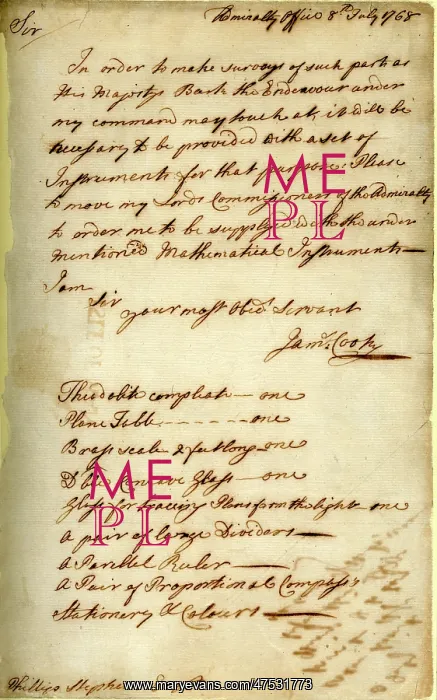 Admiralty Office 8th July 1768
Sir
In order to make surveys of such parts as
His Majestys Bark the Endeavour under
my command may touch at, it will be
necessary to be provided with a set of
Instruments for that purpose; Please
to move my Lords Commissioners of the Admiralty
to order me to be supply'd with the under
mentioned Mathematical Instruments
I am
Sir
your most Obedt Servant
Jams Cook
Theodolite compleat — one
Plane Table - - - - - - - one
Brass scale 2 feet long — one
Dble Concave Glass — one
Glass for tracing Plans from the light — one
A pair of large Dividers —
A Parallel Ruler —
A Pair of Proportional Compass's
Stationery & Colours —
Phillips Stephe
ME
PL
ME
PL
www.maryevans.com/47531773